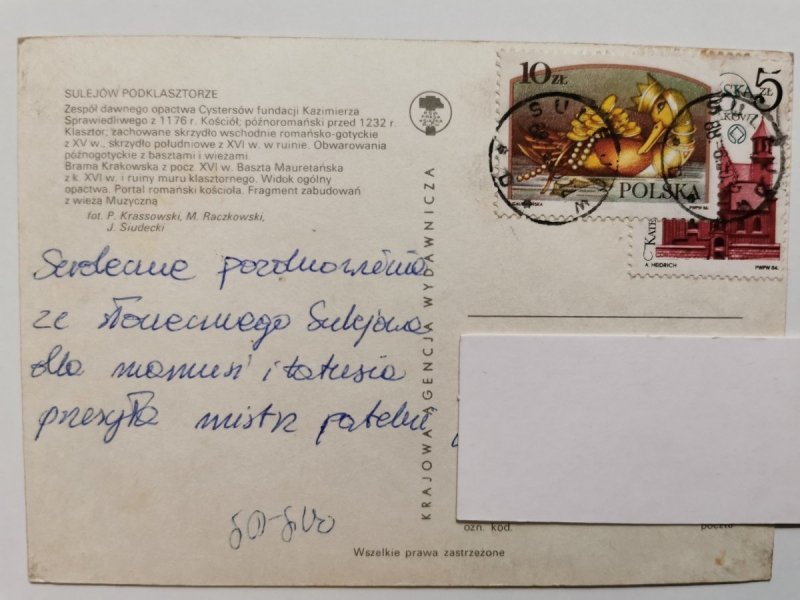 SULEJÓW PODKLASZTORZE
Zespół dawnego opactwa Cystersów fundacji Kazimierza
Sprawiedliwego z 1176 r. Kościół; późnoromański przed 1232 r.
Klasztor; zachowane skrzydło wschodnie romańsko-gotyckie
z XV w., skrzydło południowe z XVI w. w ruinie. Obwarowania
późnogotyckie z basztami i wieżami.
Brama Krakowska z pocz. XVI w. Baszta Mauretańska
z k. XVI w. i ruiny muru klasztornego. Widok ogólny
opactwa. Portal romański kościoła. Fragment zabudowań
z wieżą Muzyczną
fot. P. Krassowski, M. Raczkowski,
J. Siudecki
Serdeczne pozdrowienia
ze słonecznego Sulejowa
dla mamusi i tatusia
przesyła mistrz patelni
KRAJOWA AGENCJA WYDAWNICZA
Wszelkie prawa zastrzeżone
10 ZŁ
POLSKA
PWPW 86
5 ZŁ
A. HEIDRICH
PWPW 84
ozn. kod.
poczto